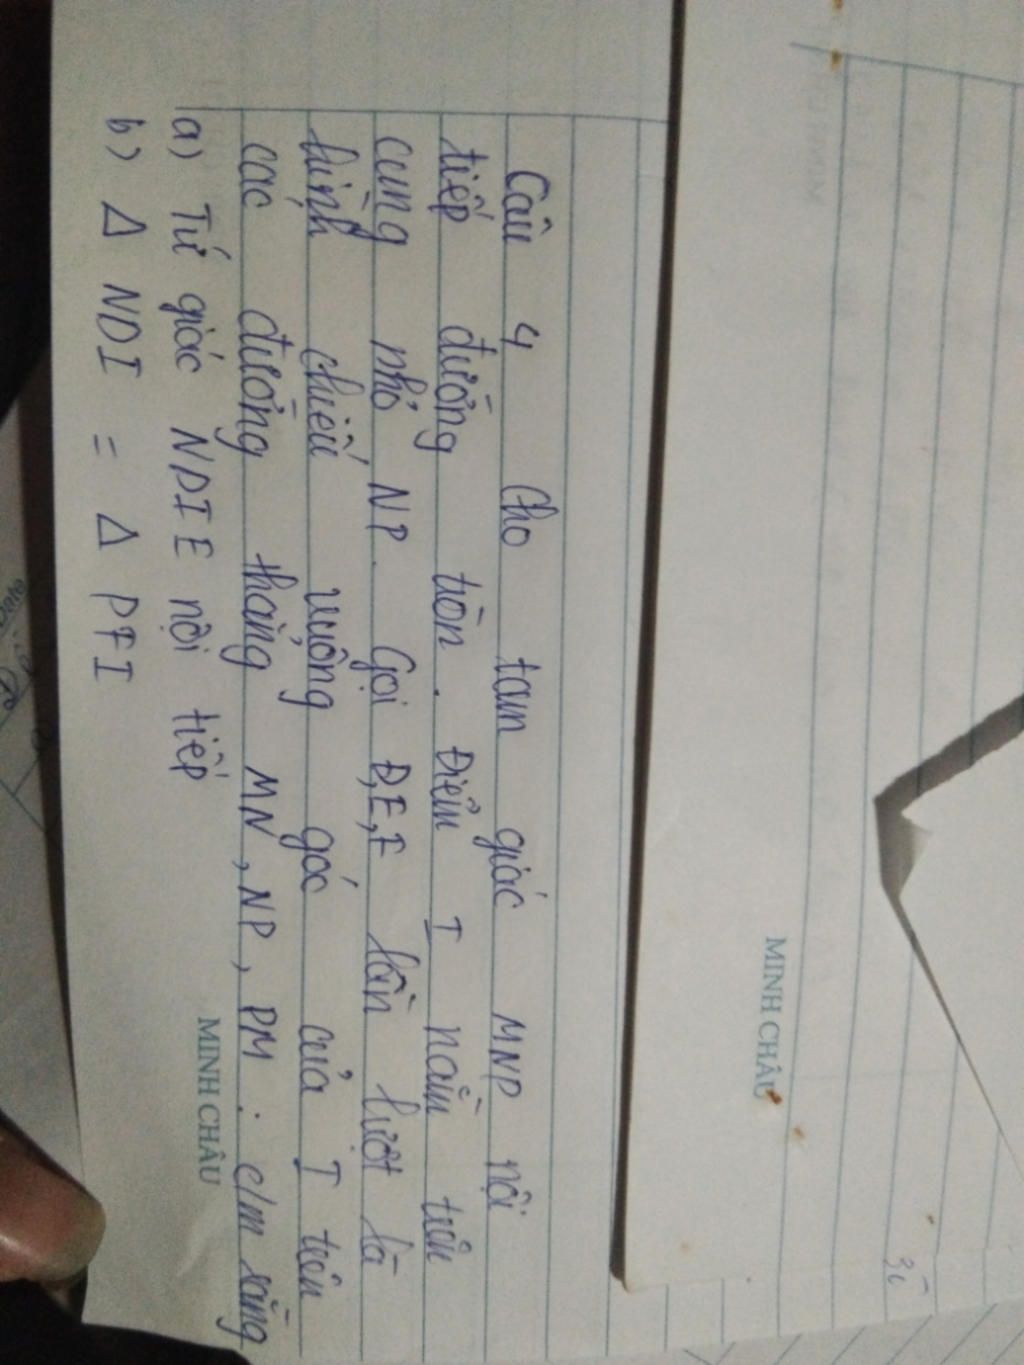 Câu 4 Cho tam giác MNP nội
tiếp đường tròn. Điểm I nằm trên
cung nhỏ NP. Gọi D,E,F lần lượt là
hình chiếu vuông góc của I trên
các đường thẳng MN, NP, PM. c/m rằng
a) Tứ giác NDIE nội tiếp
b) Δ NDI = Δ PFI
MINH CHÂU
MINH CHÂU